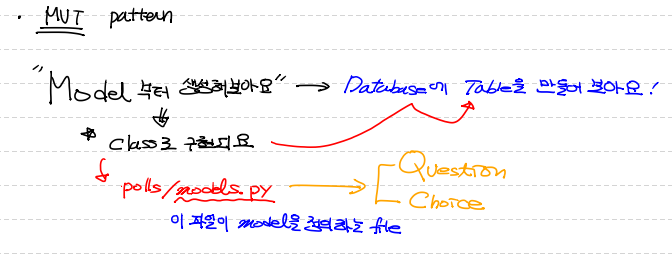 · MVT pattern
"Model 부터 생성해보아요" → Database에 Table을 만들어 보아요!
* class로 구현되요
polls/models.py → Question
Choice
이 파일이 model을 정의하는 file